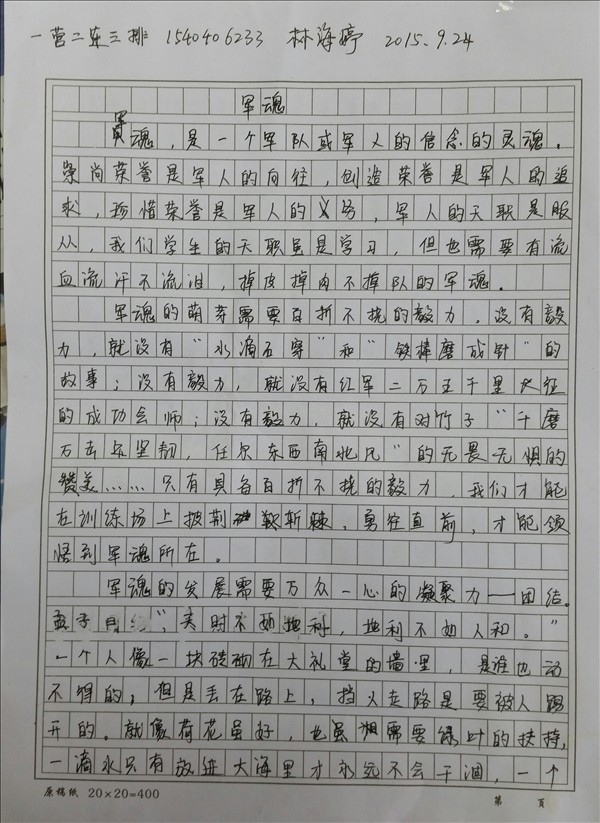 一营二连三排 1540406233 林海婷 2015.9.24
军魂
军
魂，是一个军队或军人的信念的灵魂。
崇尚荣誉是军人的向往，创造荣誉是军人的追
求，珍惜荣誉是军人的义务，军人的天职是服
从，我们学生的天职虽是学习，但也需要有流
血流汗不流泪，掉皮掉肉不掉队的军魂。
军魂的萌芽需要百折不挠的毅力。没有毅
力，就没有“水滴石穿”和“铁棒磨成针”的
故事；没有毅力，就没有红军二万五千里长征
的成功会师；没有毅力，就没有对竹子“千磨
万击还坚韧，任尔东西南北风”的无畏无惧的
赞美……只有具备百折不挠的毅力，我们才能
在训练场上披荆斩棘，勇往直前，才能领
悟到军魂所在。
军魂的发展需要万众一心的凝聚力——团结。
孟子曰：“天时不如地利，地利不如人和。”
一个人像一块砖砌在大礼堂的墙里，是谁也动
不得的；但是丢在路上，挡人走路是要被人踢
开的。就像荷花虽好，也需要绿叶的扶持，
一滴水只有放进大海里才永远不会干涸，一个
原稿纸 20×20=400 第 页